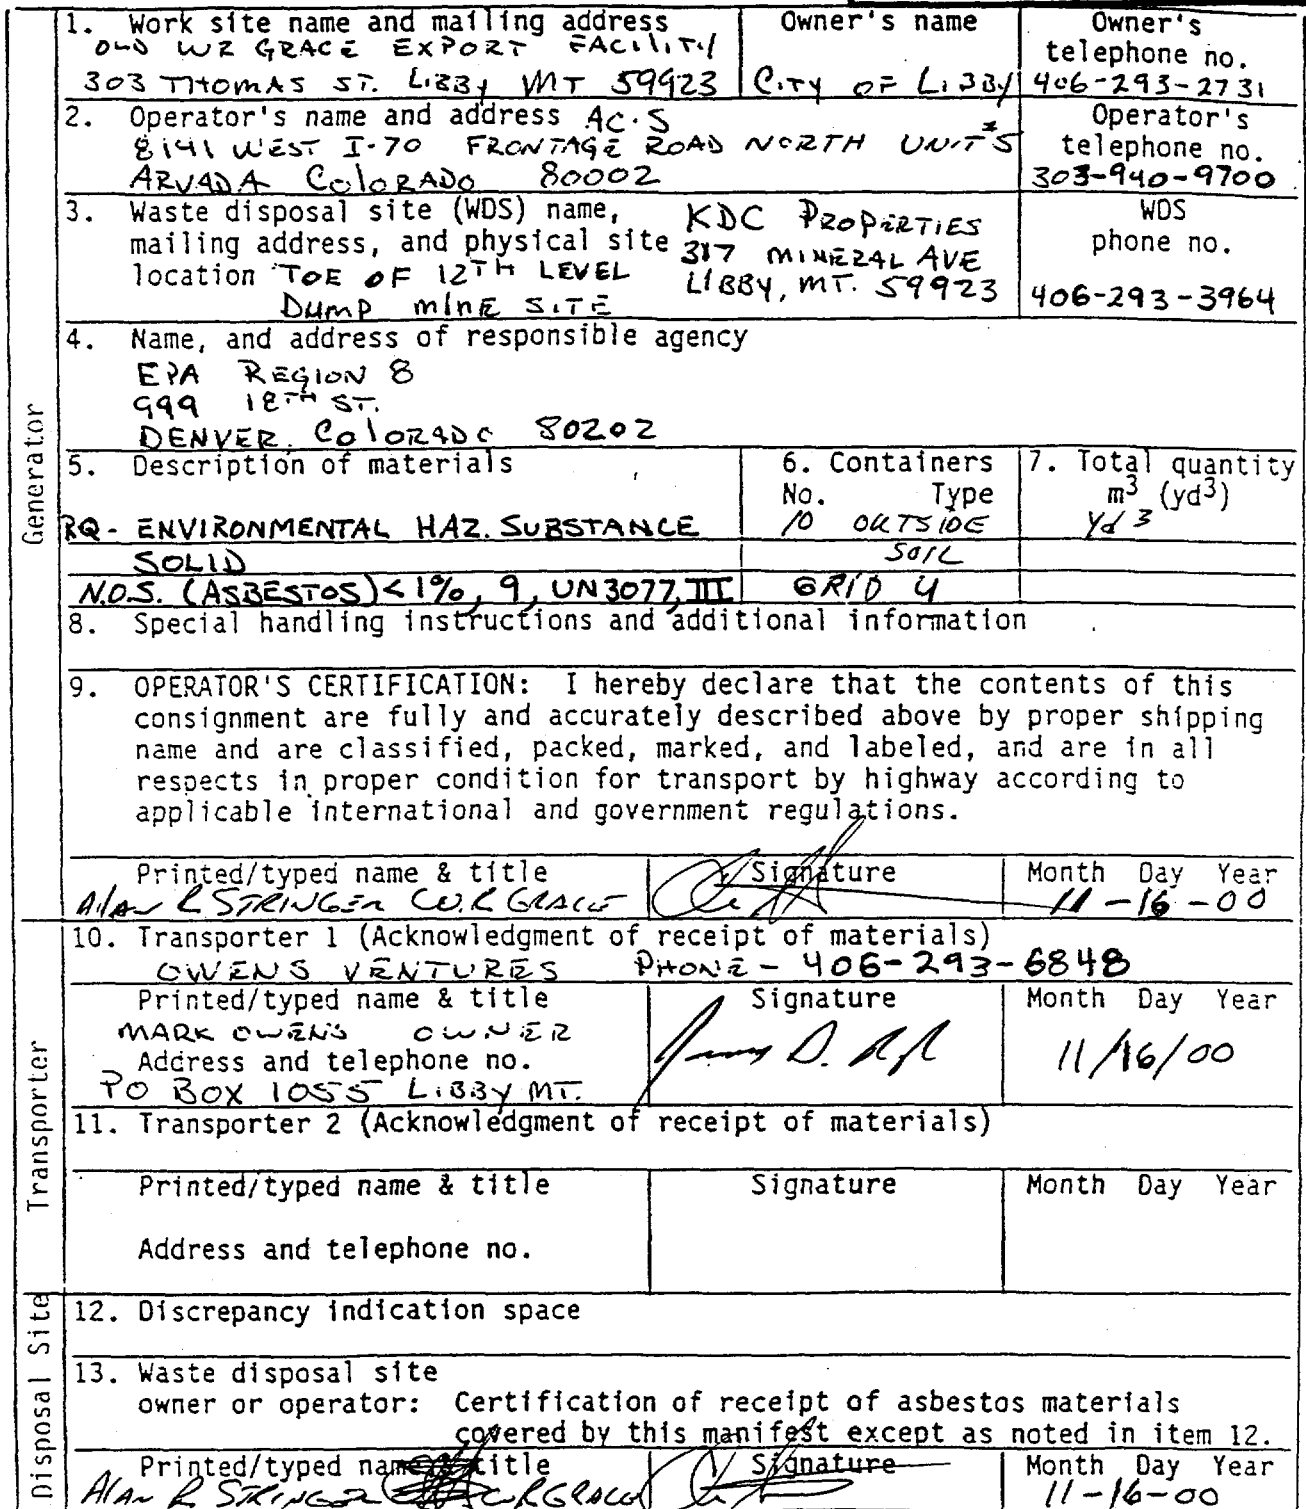 1. Work site name and mailing address
OLD WR GRACE EXPORT FACILITY
303 THOMAS ST. LIBBY MT 59923
Owner's name
CITY OF LIBBY
Owner's
telephone no.
406-293-2731
2. Operator's name and address AC.S
8141 WEST I-70 FRONTAGE ROAD NORTH UNIT #5
ARVADA COLORADO 80002
Operator's
telephone no.
303-940-9700
3. Waste disposal site (WDS) name,
mailing address, and physical site
location TOE OF 12TH LEVEL
DUMP MINE SITE
KDC PROPERTIES
317 MINERAL AVE
LIBBY, MT. 59923
WDS
phone no.
406-293-3964
Generator
4. Name, and address of responsible agency
EPA REGION 8
999 18TH ST.
DENVER. COLORADO 80202
5. Description of materials
RQ- ENVIRONMENTAL HAZ. SUBSTANCE
SOLID
N.O.S. (ASBESTOS) <1%, 9, UN3077, III
6. Containers
No. Type
10 OUTSIDE
SOIL
GRID 4
7. Total quantity
m3 (yd3)
Yd 3
8. Special handling instructions and additional information
9. OPERATOR'S CERTIFICATION: I hereby declare that the contents of this
consignment are fully and accurately described above by proper shipping
name and are classified, packed, marked, and labeled, and are in all
respects in proper condition for transport by highway according to
applicable international and government regulations.
Printed/typed name & title
Alan R STRINGER W.R GRACE
Signature
Month Day Year
11-16-00
Transporter
10. Transporter 1 (Acknowledgment of receipt of materials)
OWENS VENTURES PHONE - 406-293-6848
Printed/typed name & title
MARK OWENS OWNER
Address and telephone no.
PO BOX 1055 LIBBY MT.
Signature
Month Day Year
11/16/00
11. Transporter 2 (Acknowledgment of receipt of materials)
Printed/typed name & title
Signature
Month Day Year
Address and telephone no.
Disposal Site
12. Discrepancy indication space
13. Waste disposal site
owner or operator: Certification of receipt of asbestos materials
covered by this manifest except as noted in item 12.
Printed/typed name & title
Alan R STRINGER W R GRACE
Signature
Month Day Year
11-16-00